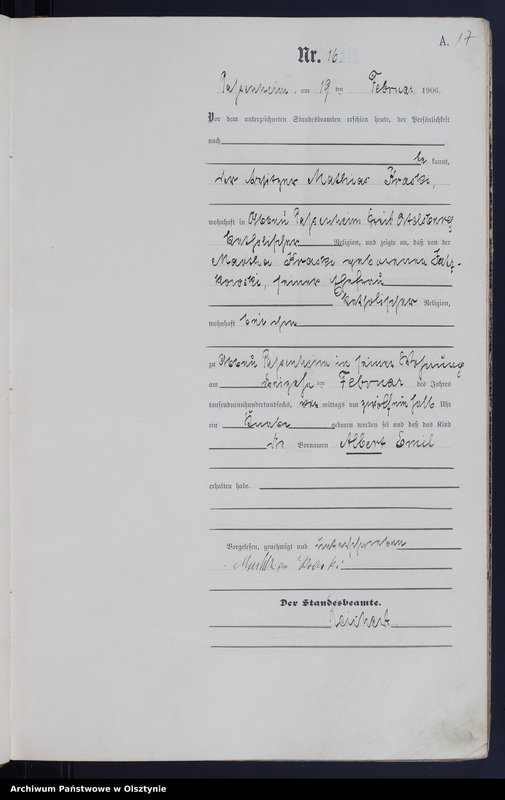 A. 17
Nr. 16.
Passenheim am 19 ten Februar 1906.
Vor dem unterzeichneten Standesbeamten erschien heute, der Persönlichkeit
nach
be kannt,
der Besitzer Mathias Kraski,
wohnhaft in Abbau Passenheim Kreis Ortelsburg
katholischer Religion, und zeigte an, daß von der
Kraski geborenen
seiner Ehefrau
katholischer Religion,
wohnhaft bei ihm
zu Abbau Passenheim in seiner Wohnung
am ten Februar des Jahres
tausendneunhundertundsechs, vor mittags um Uhr
ein Knabe geboren worden sei und daß das Kind
die Vornamen Albert Emil
erhalten habe.
Vorgelesen, genehmigt und unterschrieben
Kraski
Der Standesbeamte.
Reichert.
Archiwum Państwowe w Olsztynie